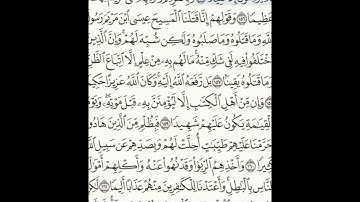 عَظِيمًا ١٥٦ وَقَوْلِهِمْ إِنَّا قَتَلْنَا ٱلْمَسِيحَ عِيسَى ٱبْنَ مَرْيَمَ رَسُو
للَّهِ وَمَا قَتَلُوهُ وَمَا صَلَبُوهُ وَلَٰكِن شُبِّهَ لَهُمْ وَإِنَّ ٱلَّذِينَ
خْتَلَفُوا۟ فِيهِ لَفِى شَكٍّ مِّنْهُ مَا لَهُم بِهِۦ مِنْ عِلْمٍ إِلَّا ٱتِّبَاعَ ٱلظَّ
وَمَا قَتَلُوهُ يَقِينًۢا ١٥٧ بَل رَّفَعَهُ ٱللَّهُ إِلَيْهِ وَكَانَ ٱللَّهُ عَزِيزًا حَكِي
وَإِن مِّنْ أَهْلِ ٱلْكِتَٰبِ إِلَّا لَيُؤْمِنَنَّ بِهِۦ قَبْلَ مَوْتِهِۦ وَيَوْ
ٱلْقِيَٰمَةِ يَكُونُ عَلَيْهِمْ شَهِيدًا ١٥٩ فَبِظُلْمٍ مِّنَ ٱلَّذِينَ هَادُ
حَرَّمْنَا عَلَيْهِمْ طَيِّبَٰتٍ أُحِلَّتْ لَهُمْ وَبِصَدِّهِمْ عَن سَبِيلِ ٱللَّ
كَثِيرًا ١٦٠ وَأَخْذِهِمُ ٱلرِّبَوٰا۟ وَقَدْ نُهُوا۟ عَنْهُ وَأَكْلِهِمْ أَمْوَٰلَ
لنَّاسِ بِٱلْبَٰطِلِ وَأَعْتَدْنَا لِلْكَٰفِرِينَ مِنْهُمْ عَذَابًا أَلِيمًا ١٦١ لَّٰكِ